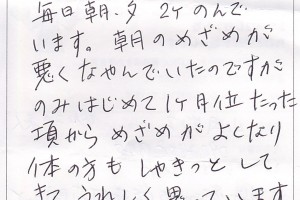 毎日朝、夕 2ケのんで
います。朝のめざめが
悪くなやんでいたのですが
のみはじめて1ケ月位たった
項からめざめがよくなり
体の方もしゃきっとして
きてうれしく思っています